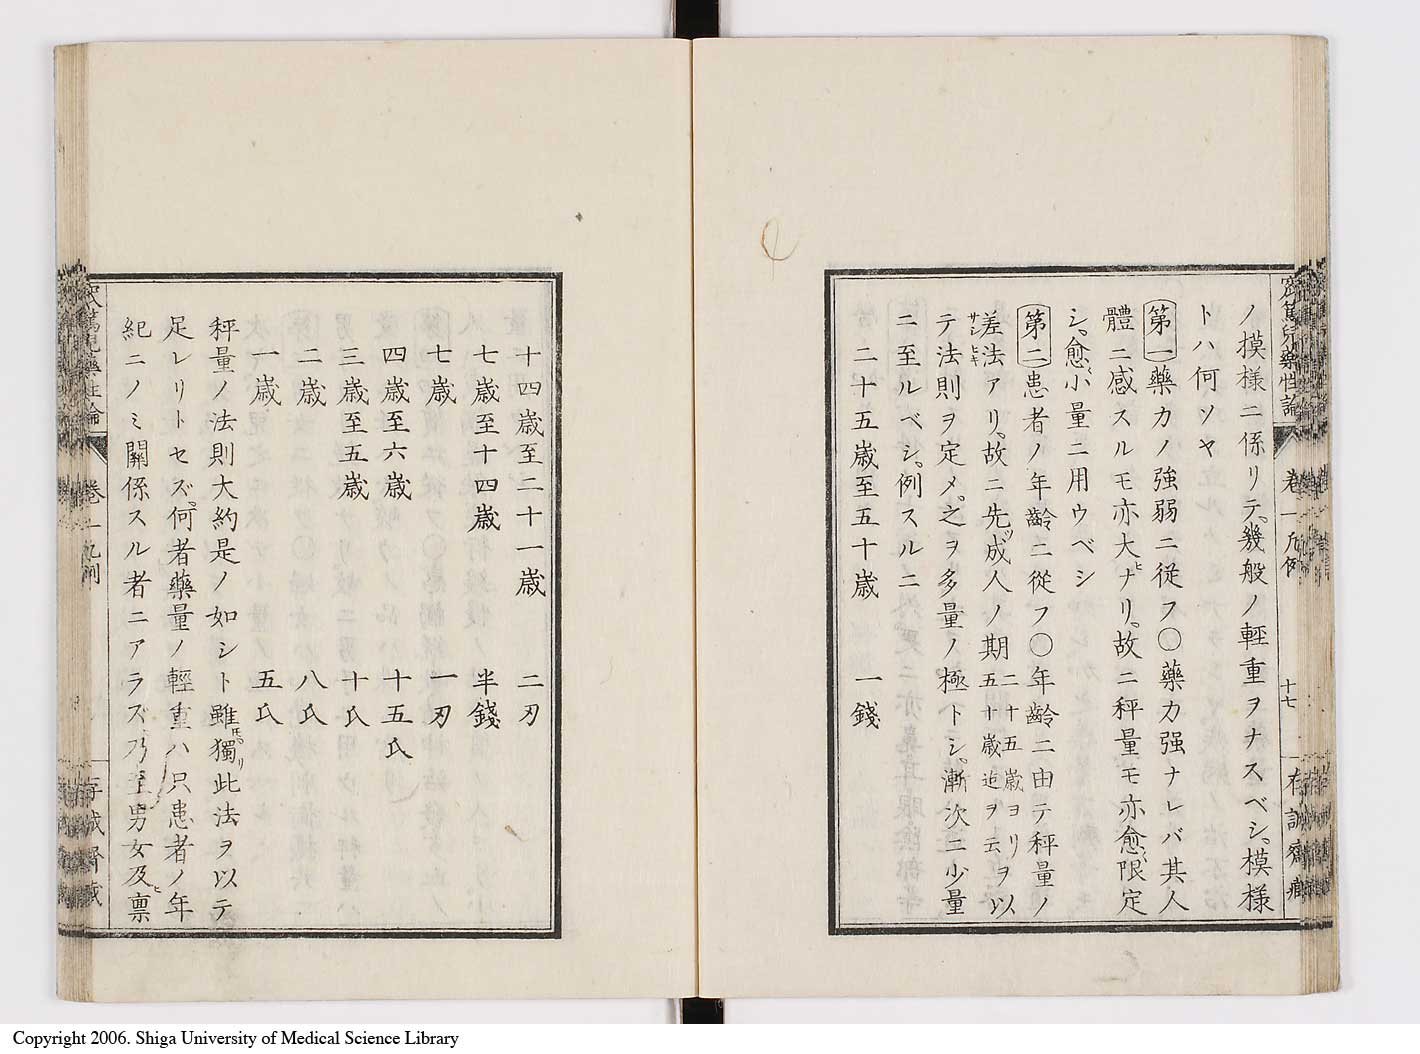 ノ摸様ニ係リテ幾般ノ輕重ヲナスベシ模様
トハ何ソヤ
第一藥力ノ強弱ニ従フ〇藥力强ナレバ其人
體ニ感スルモ亦大ナリ故ニ秤量モ亦愈限定
シ愈小量ニ用ウベシ
第二患者ノ年齡ニ從フ〇年齡ニ由テ秤量ノ
差法アリ故ニ先ツ成人ノ期二十五歳ヨリ五十歳迄ヲ云ヲ以
テ法則ヲ定メ之ヲ多量ノ極トシ漸次ニ少量
ニ至ルベシ例スルニ
二十五歳至五十歳 一錢
卷一凡例 十七
十四歳至二十一歳 二刃
七歳至十四歳 半錢
七歳 一刃
四歳至六歳 十五氏
三歳至五歳 十氏
二歳 八氏
一歳 五氏
秤量ノ法則大約是ノ如シト雖獨リ此法ヲ以テ
足レリトセズ何者藥量ノ輕重ハ只患者ノ年
紀ニノミ關係スル者ニアラズ乃至男女及ヒ禀
Copyright 2006. Shiga University of Medical Science Library